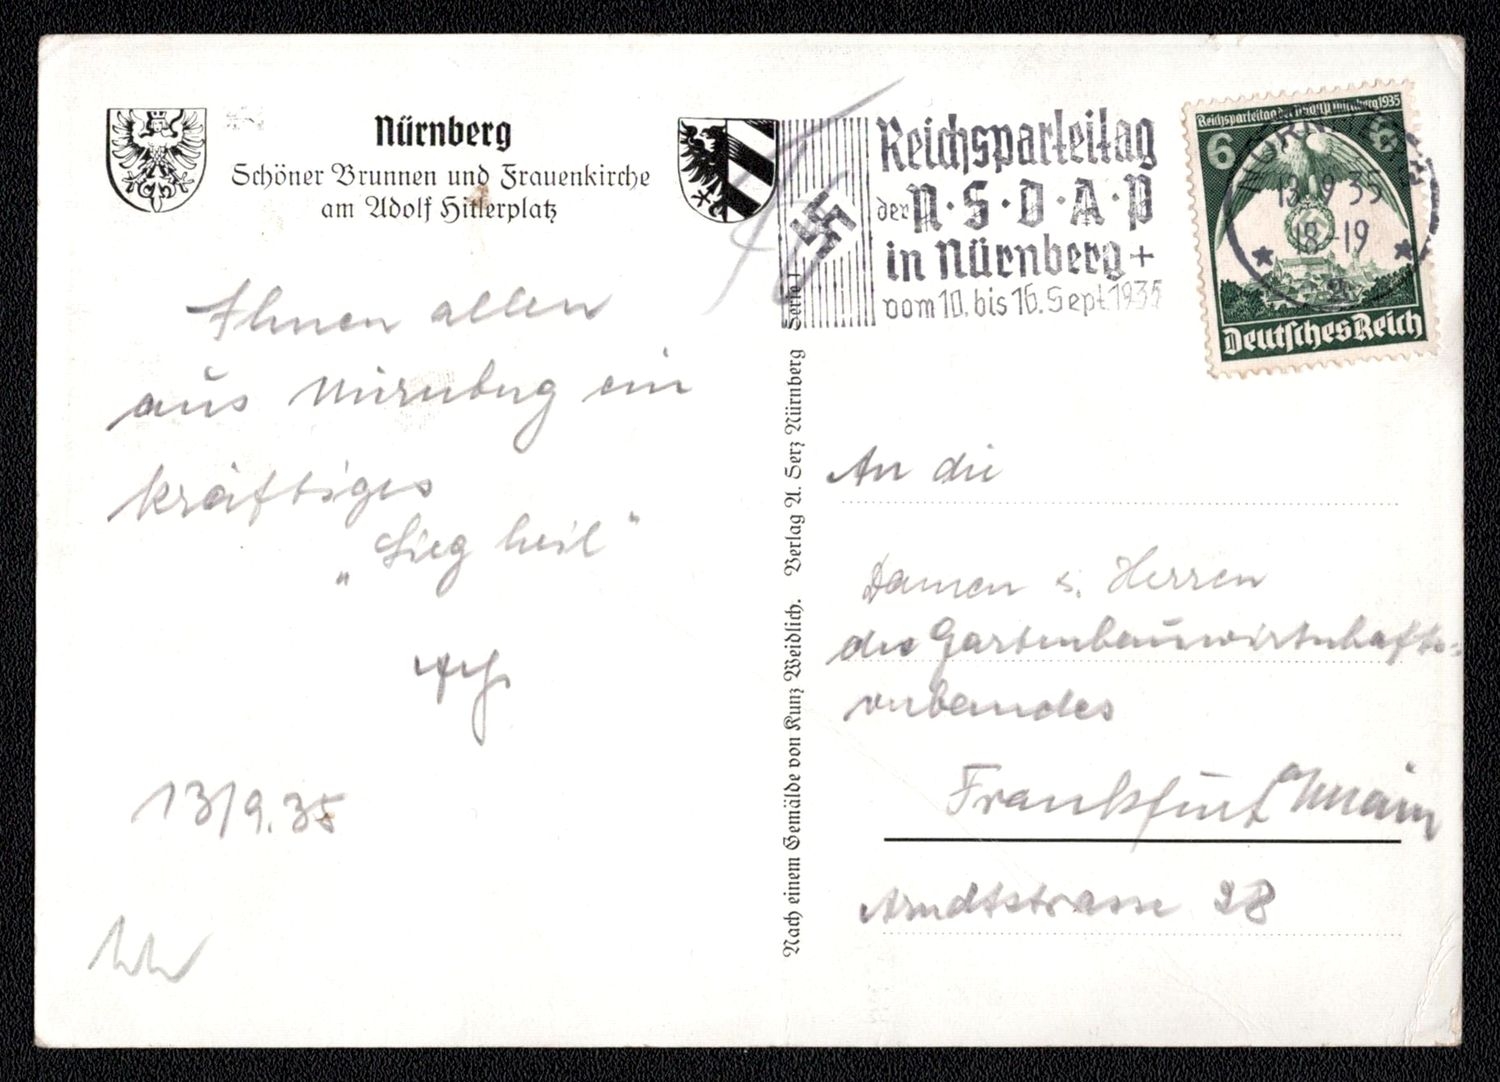 Nürnberg
Schöner Brunnen und Frauenkirche
am Adolf Hitlerplatz
Ihnen allen
aus Nürnberg ein
kräftiges
„Sieg heil“
13/9.35
Nach einem Gemälde von Kunz Weidlich. Verlag A. Serz Nürnberg Serie I
Reichsparteitag
der N·S·D·A·P
in Nürnberg +
vom 10. bis 16. Sept. 1935
Reichsparteitag der NSDAP Nürnberg 1935
6 6
Deutsches Reich
NÜRNBERG
13.9 35
18-19
An die
Damen u. Herren
des Gartenbauwirtschafts-
verbandes
Frankfurt a/Main
Arndtstrasse 28